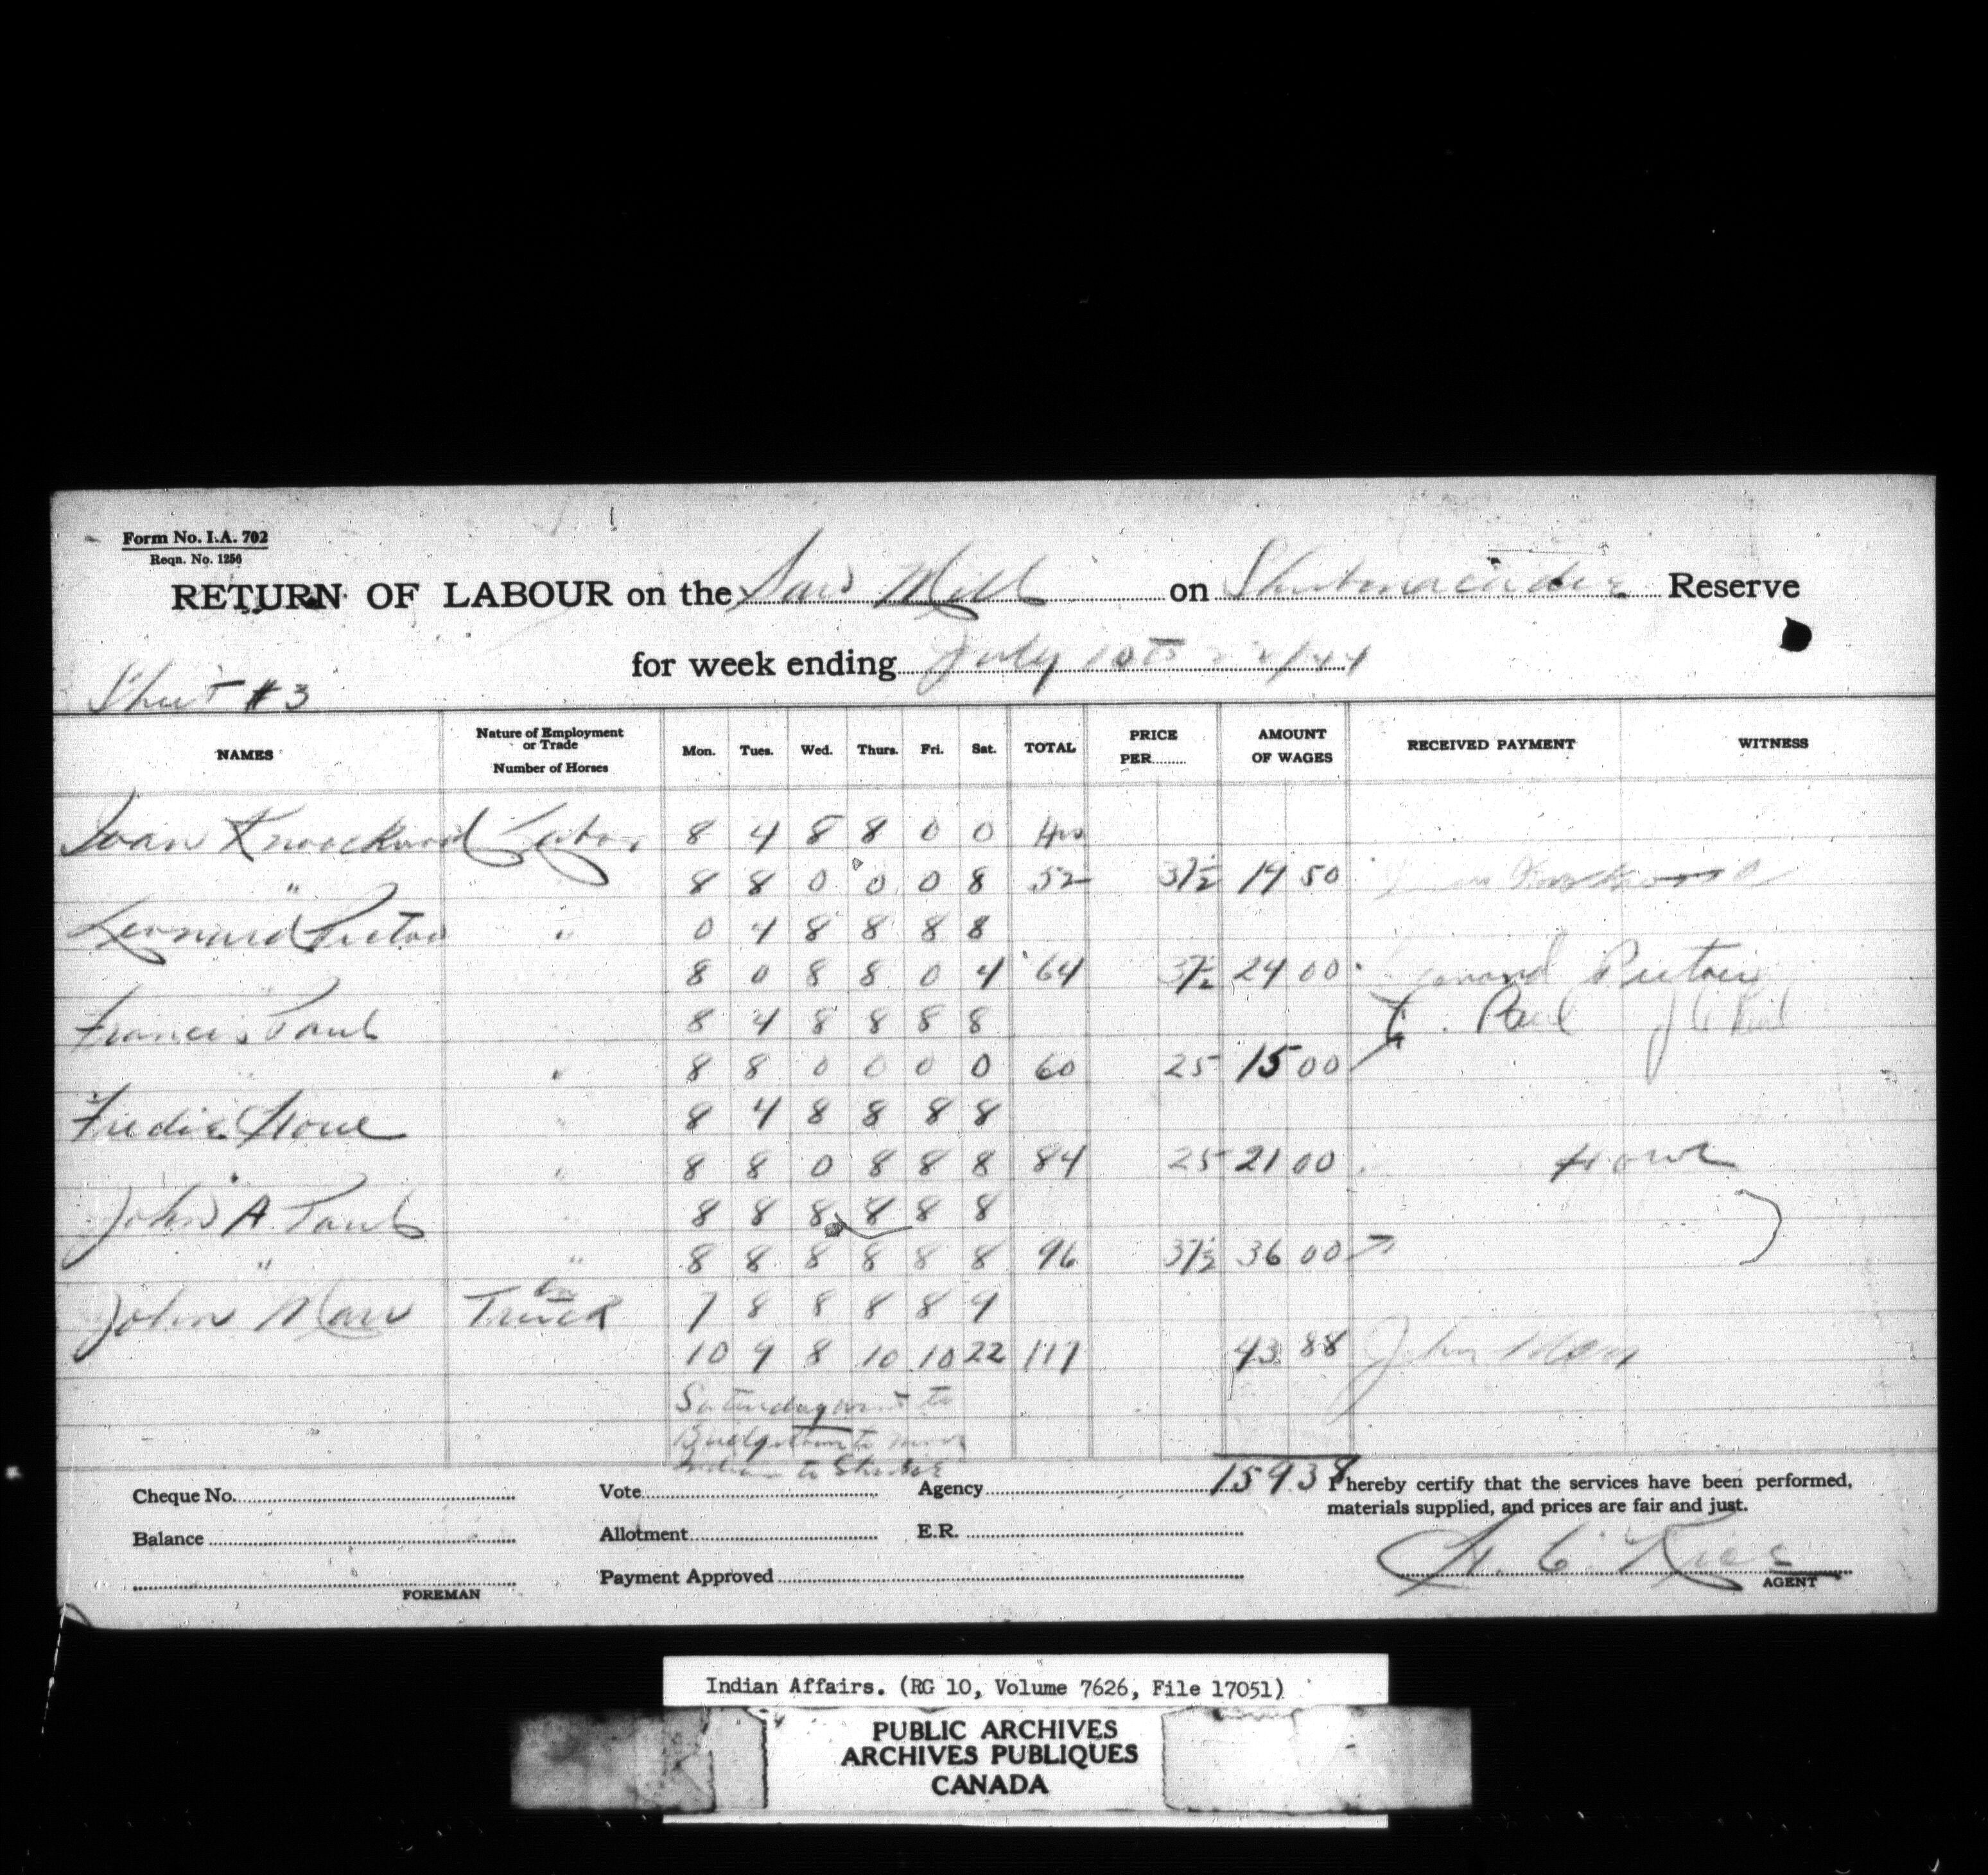 Form No. I.A. 702
Reqn. No. 1256
RETURN OF LABOUR on the Saw Mill on Shubenacadie Reserve
for week ending July 10 to 22/44
Sheet #3
NAMES Nature of Employment or Trade Number of Horses Mon. Tues. Wed. Thurs. Fri. Sat. TOTAL PRICE PER........ AMOUNT OF WAGES RECEIVED PAYMENT WITNESS
Knockwood Labor 8 4 8 8 0 0 Hrs
" 8 8 0 0 0 8 52 37½ 19 50
Leonard Pictou " 0 4 8 8 8 8
" 8 0 8 8 0 4 64 37½ 24 00 Pictou
Francis Paul 8 4 8 8 8 8 Paul
" " 8 8 0 0 0 0 60 25 15 00
Fredie Howe " 8 4 8 8 8 8
" " 8 8 0 8 8 8 84 25 21 00 Howe
John A. Paul " 8 8 8 8 8 8
" " 8 8 8 8 8 8 96 37½ 36 00
John Marr Truck 7 8 8 8 8 9
10 9 8 10 10 22 117 43 88 John Marr
Saturday went to
Bridgetown to move
Indian to Shubie
159 38
I hereby certify that the services have been performed,
materials supplied, and prices are fair and just.
Cheque No. Vote Agency
Balance Allotment E.R.
H. C. Rice
Payment Approved AGENT
FOREMAN
Indian Affairs. (RG 10, Volume 7626, File 17051)
PUBLIC ARCHIVES
ARCHIVES PUBLIQUES
CANADA